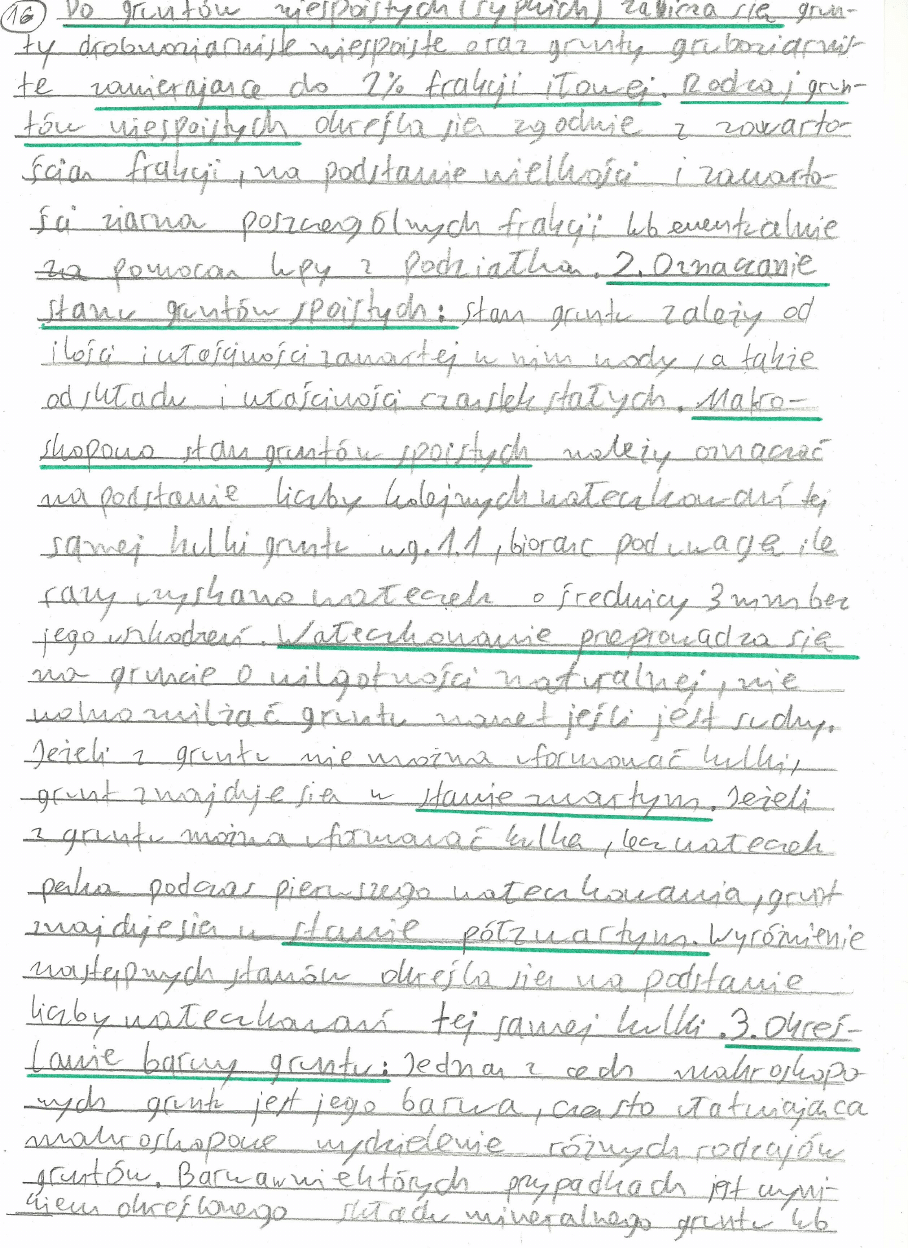 16 Do gruntów niespoistych (sypkich) zalicza się grun-
ty drobnoziarniste niespoiste oraz grunty gruboziarnis-
te zawierające do 2% frakcji iłowej. Rodzaj grun-
tów niespoistych określa się zgodnie z zawarto-
ścią frakcji, na podstawie wielkości i zawarto-
ści ziarna poszczególnych frakcji lub ewentualnie
za pomocą lupy z podziałką. 2. Oznaczanie
stanu gruntów spoistych: stan gruntu zależy od
ilości i właściwości zawartej w nim wody, a także
od składu i właściwości cząstek stałych. Makro-
skopowo stan gruntów spoistych należy oznaczać
na podstawie liczby kolejnych wałeczkowań tej
samej kulki gruntu wg. 1.1, biorąc pod uwagę ile
razy uzyskano wałeczek o średnicy 3 mm bez
jego uszkodzeń. Wałeczkowanie przeprowadza się
na gruncie o wilgotności naturalnej, nie
wolno zwilżać gruntu nawet jeśli jest suchy.
Jeżeli z gruntu nie można uformować kulki,
grunt znajduje się w stanie zwartym. Jeżeli
z gruntu można uformować kulkę, lecz wałeczek
pęka podczas pierwszego wałeczkowania, grunt
znajduje się w stanie półzwartym. Wyróżnienie
następnych stanów określa się na podstawie
liczby wałeczkowań tej samej kulki. 3. Okreś-
lanie barwy gruntu: Jedną z cech makroskopo
wych gruntu jest jego barwa, często ułatwiająca
makroskopowe wydzielenie różnych rodzajów
gruntów. Barwa w niektórych przypadkach jest wyni-
kiem określonego składu mineralnego gruntu lub